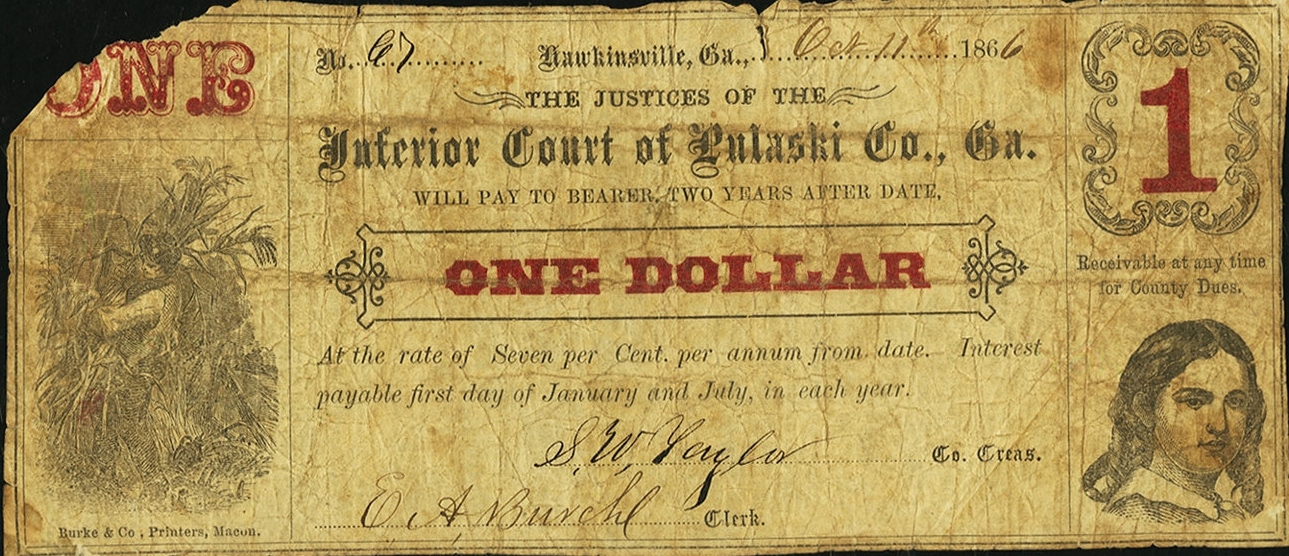 ONE
No. 67 Hawkinsville, Ga., Oct 11th 1866
THE JUSTICES OF THE
Inferior Court of Pulaski Co., Ga.
WILL PAY TO BEARER, TWO YEARS AFTER DATE,
ONE DOLLAR
At the rate of Seven per Cent. per annum from date. Interest
payable first day of January and July, in each year.
S. W. Taylor Co. Creas.
E. A. Burch Clerk.
Burke & Co., Printers, Macon.
1
Receivable at any time
for County Dues.